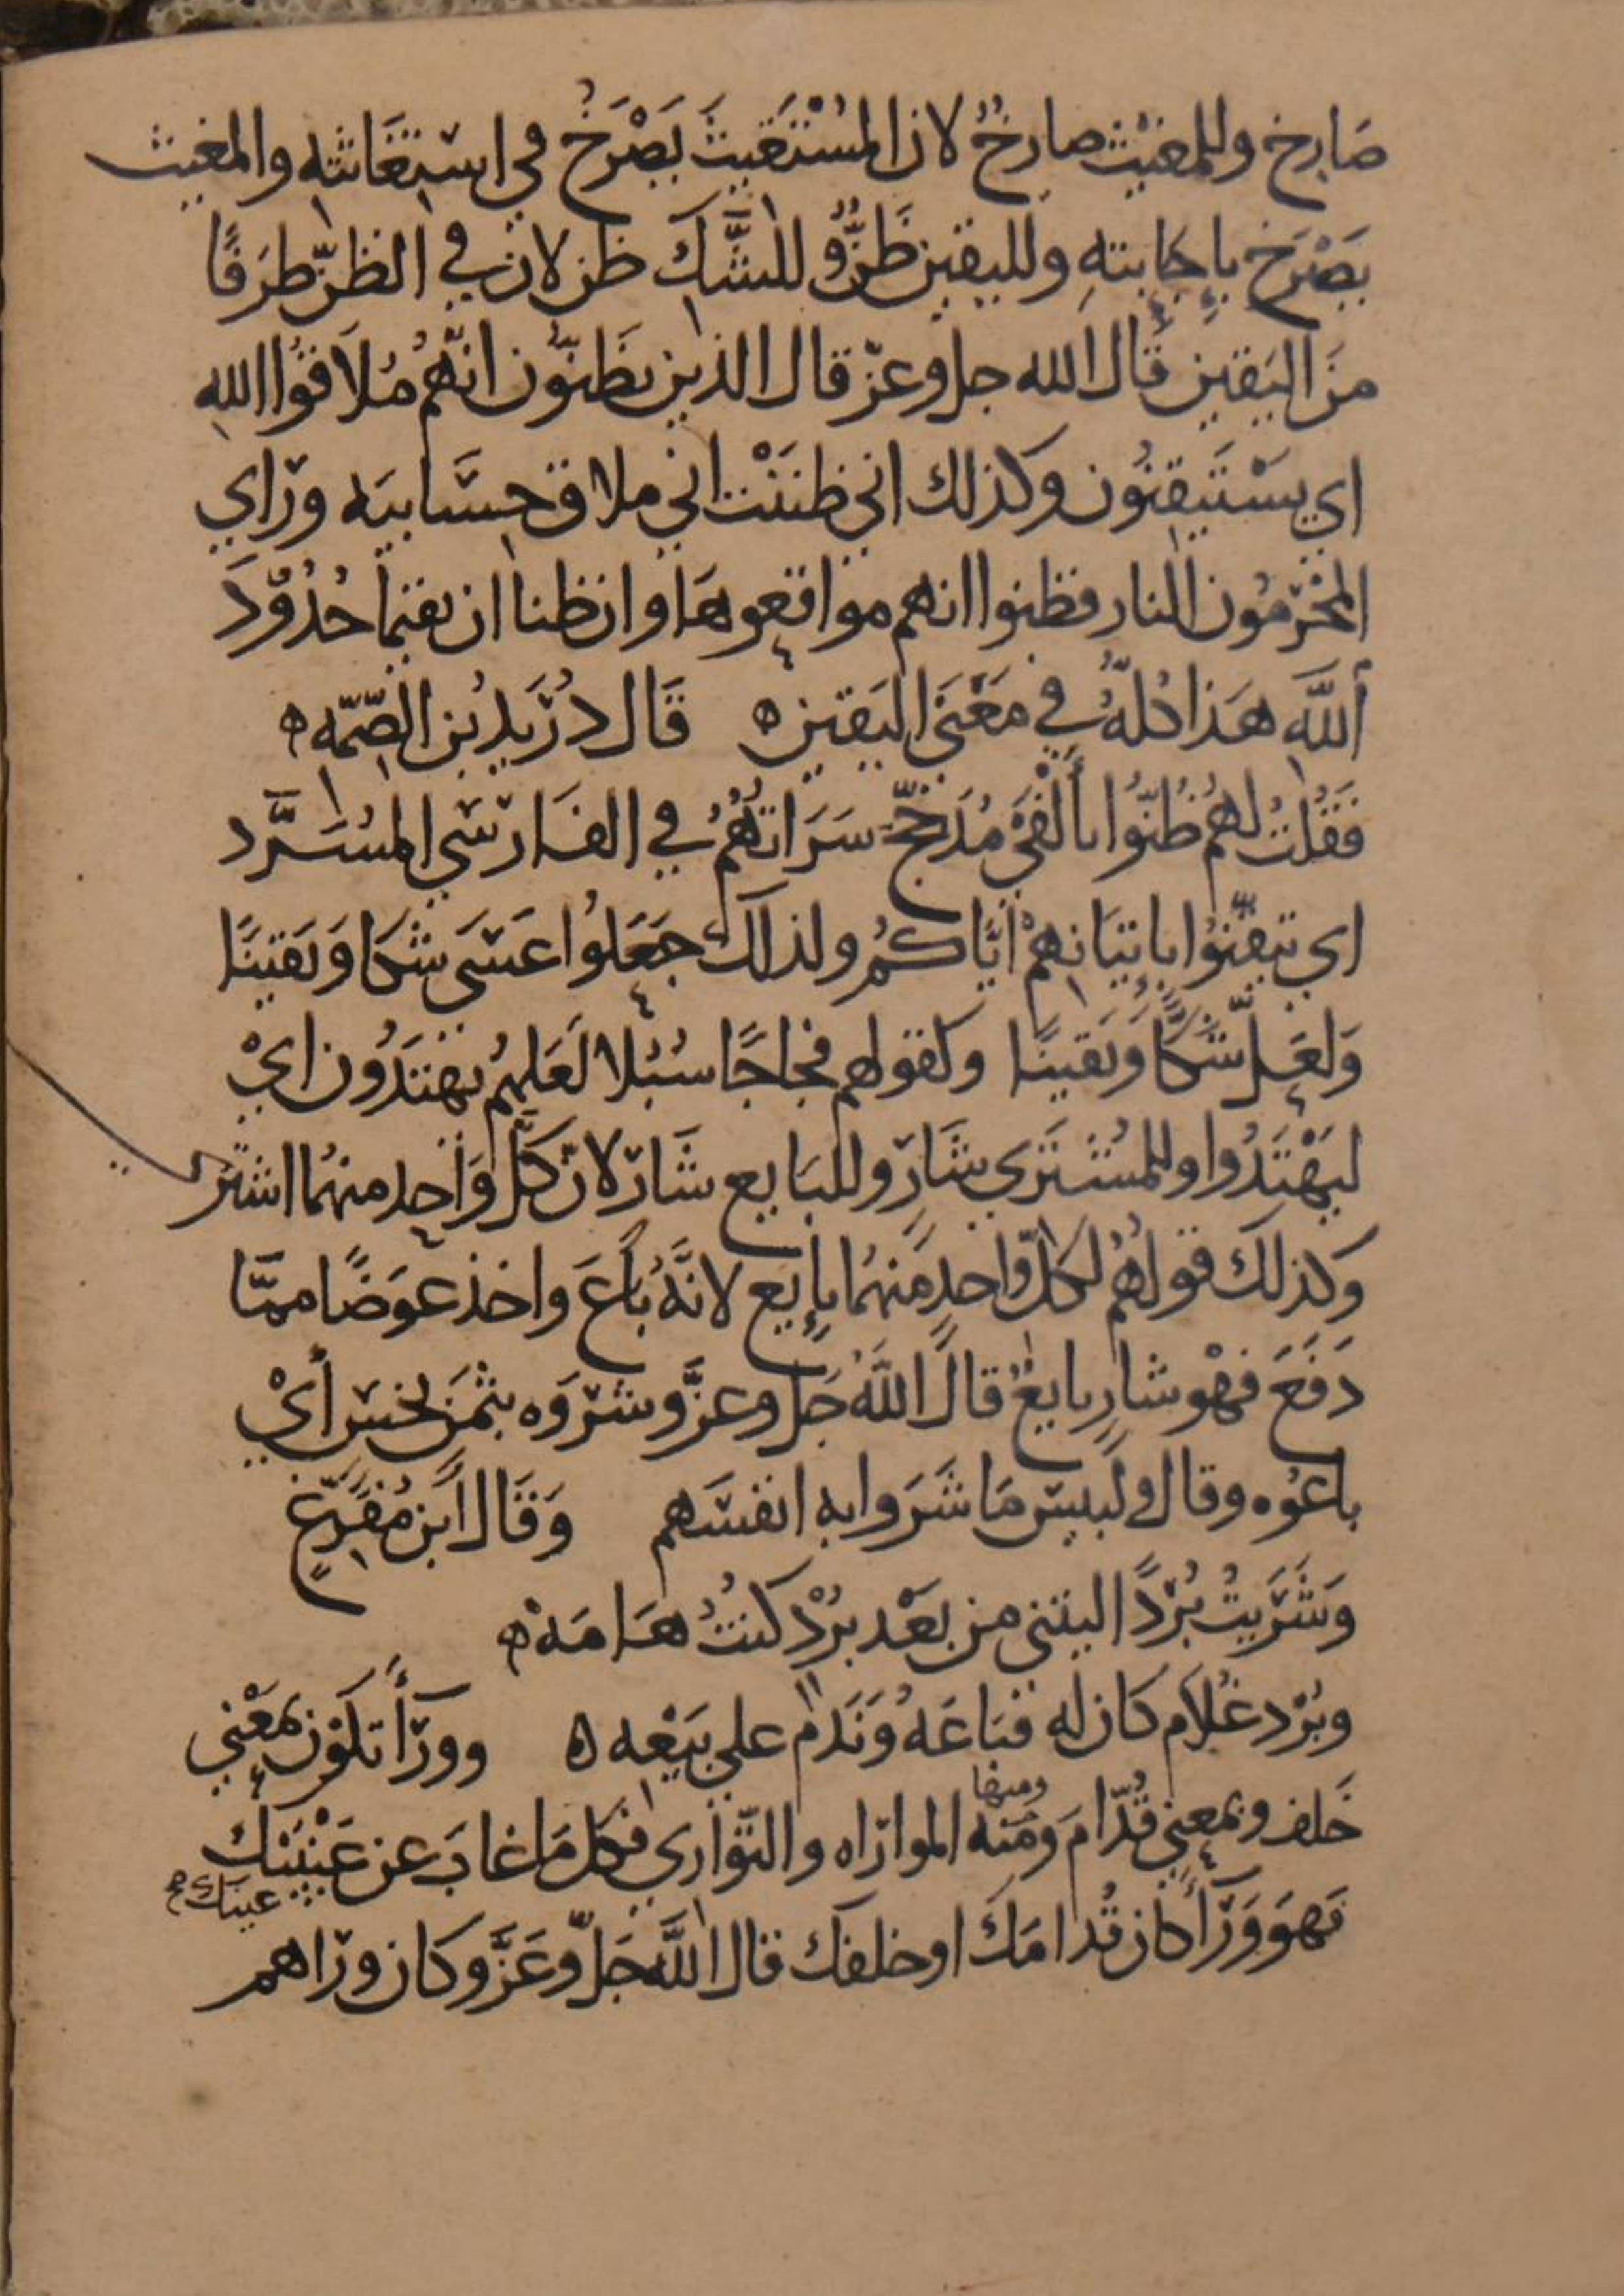 صَارِخ وللمغيْث صارخٌ لان المُسْتَغيثَ يَصْرَخُ في استغَاثته والمغيث
يَصْرَخ بإجَابتهِ ولليقين ظَنٌّ وللشَّك ظن لان في الظنّ طرَفًا
منَ اليَقين قال الله جل وعزّ قال الذين يظنّون انهُم مُلَاقوُا اللهِ
اي يسْتَيقنُون وكذلك اني ظننْت اني ملاق حسَابيَه ورَاي
المجْرمُون النار فظنوا انهم مواقعوهَا وان ظنا ان يقيمَا حُدُودَ
أللَّه هَذا كُلهُ في مَعْنَى اليَقين ه قَال دُرَيد بُن الصِّمّه ه
فَقُلتُ لهُم ظُنّوُا بأَلْفَيْ مُدَجّجٍ سَرَاتهُمُ في الفَارسَي المُسَرَّد
اي تيقّنوُا بإتيَانهمْ ايَّاكُم ولذلك جَعَلوُا عَسَى شكا وَيَقينًا
وَلعَلّ شَكًّا وَيَقينًا وكقولهم فجاجًا سُبُلا لَعَلهمُ يهتَدُون ايْ
ليَهْتَدُوا وللمُشتَرَي شَارٍ وللبَايع شَار لانّ كلَّ وَاحد منهُما اشترى
وَكذلك قولهُم لكلّ وَاحدٍ منهُما بإيع لانَّهُ بَاعَ واخذ عوَضًا ممّا
دَفَعَ فهْو شارٍ بايعٌ قالَ اللَّهُ جَل وعزَّ وشرَوَه بثمَن بخسٍ أيْ
باعُوه وقال ولبيس مَا شَرَوا به انفسَهم وَقَال أبن مُفَرّغٍ
وَشَرَيتُ بُرْدًا ليتني من بَعْد بُرْد كنتُ هَامَهْ ه
وبُرْد غُلَام كَان له فبَاعَهُ وَنَدمَ علي بيَعْه ه وورَآ تكَوُن بمعَْني
خَلف وبمعني قُدّامَ ومَنه المواراه والتوَاري فكل مَا غابَ عن عَيْنَيْك
ومنها
عيناك صح
فهوَ وَرَآ كان قُدامَك او خلفك قال اللَّه جَلّ وعَزَّ وكان وراهم